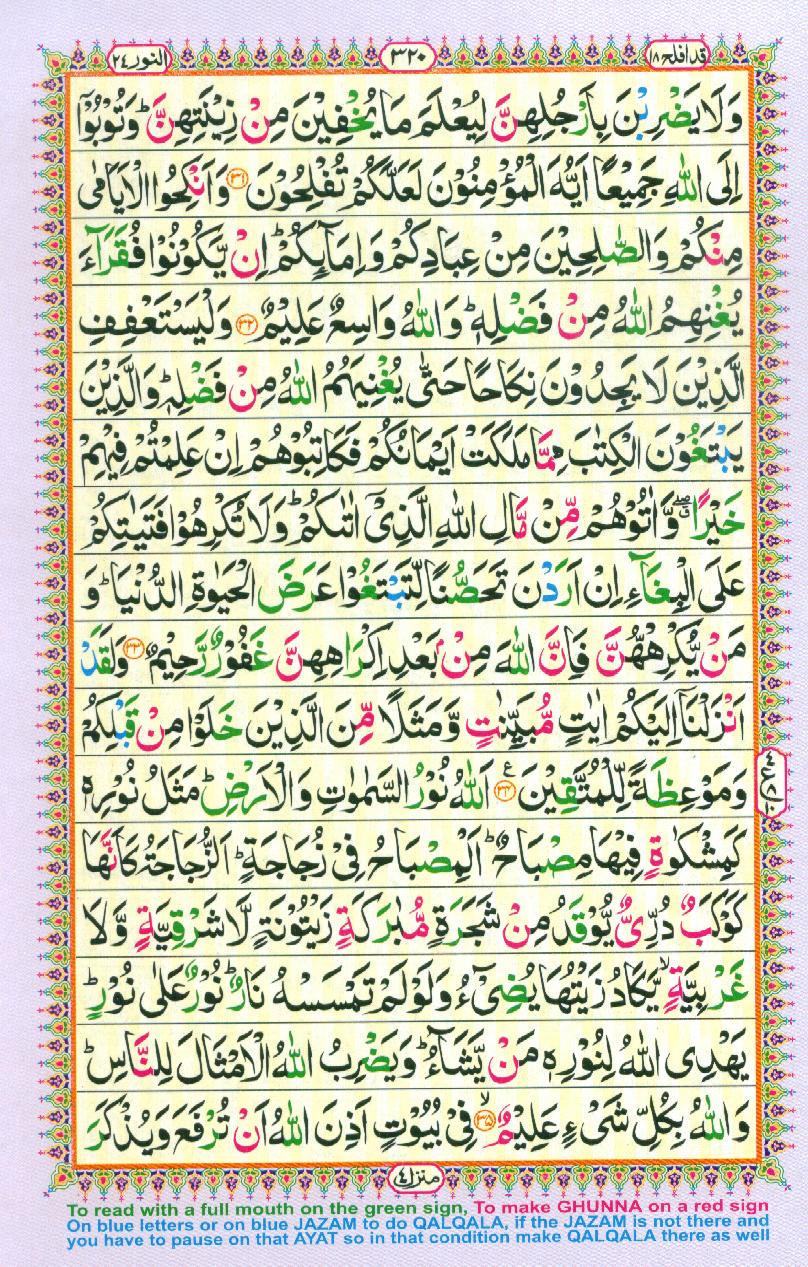 قدافلح ۱۸
۳۲۰
النور ۲۴
وَلَا يَضْرِبْنَ بِاَرْجُلِهِنَّ لِيُعْلَمَ مَا يُخْفِيْنَ مِنْ زِيْنَتِهِنَّ ؕ وَتُوْبُوْۤا
اِلَى اللّٰهِ جَمِيْعًا اَيُّهَ الْمُؤْمِنُوْنَ لَعَلَّكُمْ تُفْلِحُوْنَ ۳۱ وَاَنْكِحُوا الْاَيَامٰى
مِنْكُمْ وَالصّٰلِحِيْنَ مِنْ عِبَادِكُمْ وَاِمَآئِكُمْ ؕ اِنْ يَّكُوْنُوْا فُقَرَآءَ
يُغْنِهِمُ اللّٰهُ مِنْ فَضْلِهٖ ؕ وَاللّٰهُ وَاسِعٌ عَلِيْمٌ ۳۲ وَلْيَسْتَعْفِفِ
الَّذِيْنَ لَا يَجِدُوْنَ نِكَاحًا حَتّٰى يُغْنِيَهُمُ اللّٰهُ مِنْ فَضْلِهٖ ؕ وَالَّذِيْنَ
يَبْتَغُوْنَ الْكِتٰبَ مِمَّا مَلَكَتْ اَيْمَانُكُمْ فَكَاتِبُوْهُمْ اِنْ عَلِمْتُمْ فِيْهِمْ
خَيْرًا ۖق وَّاٰتُوْهُمْ مِّنْ مَّالِ اللّٰهِ الَّذِيْۤ اٰتٰىكُمْ ؕ وَلَا تُكْرِهُوْا فَتَيٰتِكُمْ
عَلَى الْبِغَآءِ اِنْ اَرَدْنَ تَحَصُّنًا لِّتَبْتَغُوْا عَرَضَ الْحَيٰوةِ الدُّنْيَا ؕ وَ
مَنْ يُّكْرِهْهُّنَّ فَاِنَّ اللّٰهَ مِنْۢ بَعْدِ اِكْرَاهِهِنَّ غَفُوْرٌ رَّحِيْمٌ ۳۳ وَلَقَدْ
اَنْزَلْنَاۤ اِلَيْكُمْ اٰيٰتٍ مُّبَيِّنٰتٍ وَّمَثَلًا مِّنَ الَّذِيْنَ خَلَوْا مِنْ قَبْلِكُمْ
وَمَوْعِظَةً لِّلْمُتَّقِيْنَ ۳۴ ع اَللّٰهُ نُوْرُ السَّمٰوٰتِ وَالْاَرْضِ ؕ مَثَلُ نُوْرِهٖ
كَمِشْكٰوةٍ فِيْهَا مِصْبَاحٌ ؕ اَلْمِصْبَاحُ فِيْ زُجَاجَةٍ ؕ اَلزُّجَاجَةُ كَاَنَّهَا
كَوْكَبٌ دُرِّيٌّ يُّوْقَدُ مِنْ شَجَرَةٍ مُّبٰرَكَةٍ زَيْتُوْنَةٍ لَّا شَرْقِيَّةٍ وَّلَا
غَرْبِيَّةٍ ۙ يَّكَادُ زَيْتُهَا يُضِيْٓءُ وَلَوْ لَمْ تَمْسَسْهُ نَارٌ ؕ نُوْرٌ عَلٰى نُوْرٍ ؕ
يَهْدِى اللّٰهُ لِنُوْرِهٖ مَنْ يَّشَآءُ ؕ وَيَضْرِبُ اللّٰهُ الْاَمْثَالَ لِلنَّاسِ ؕ
وَاللّٰهُ بِكُلِّ شَيْءٍ عَلِيْمٌ ۳۵ ۙ فِيْ بُيُوْتٍ اَذِنَ اللّٰهُ اَنْ تُرْفَعَ وَيُذْكَرَ
منزل ۴
To read with a full mouth on the green sign, To make GHUNNA on a red sign
On blue letters or on blue JAZAM to do QALQALA, if the JAZAM is not there and
you have to pause on that AYAT so in that condition make QALQALA there as well